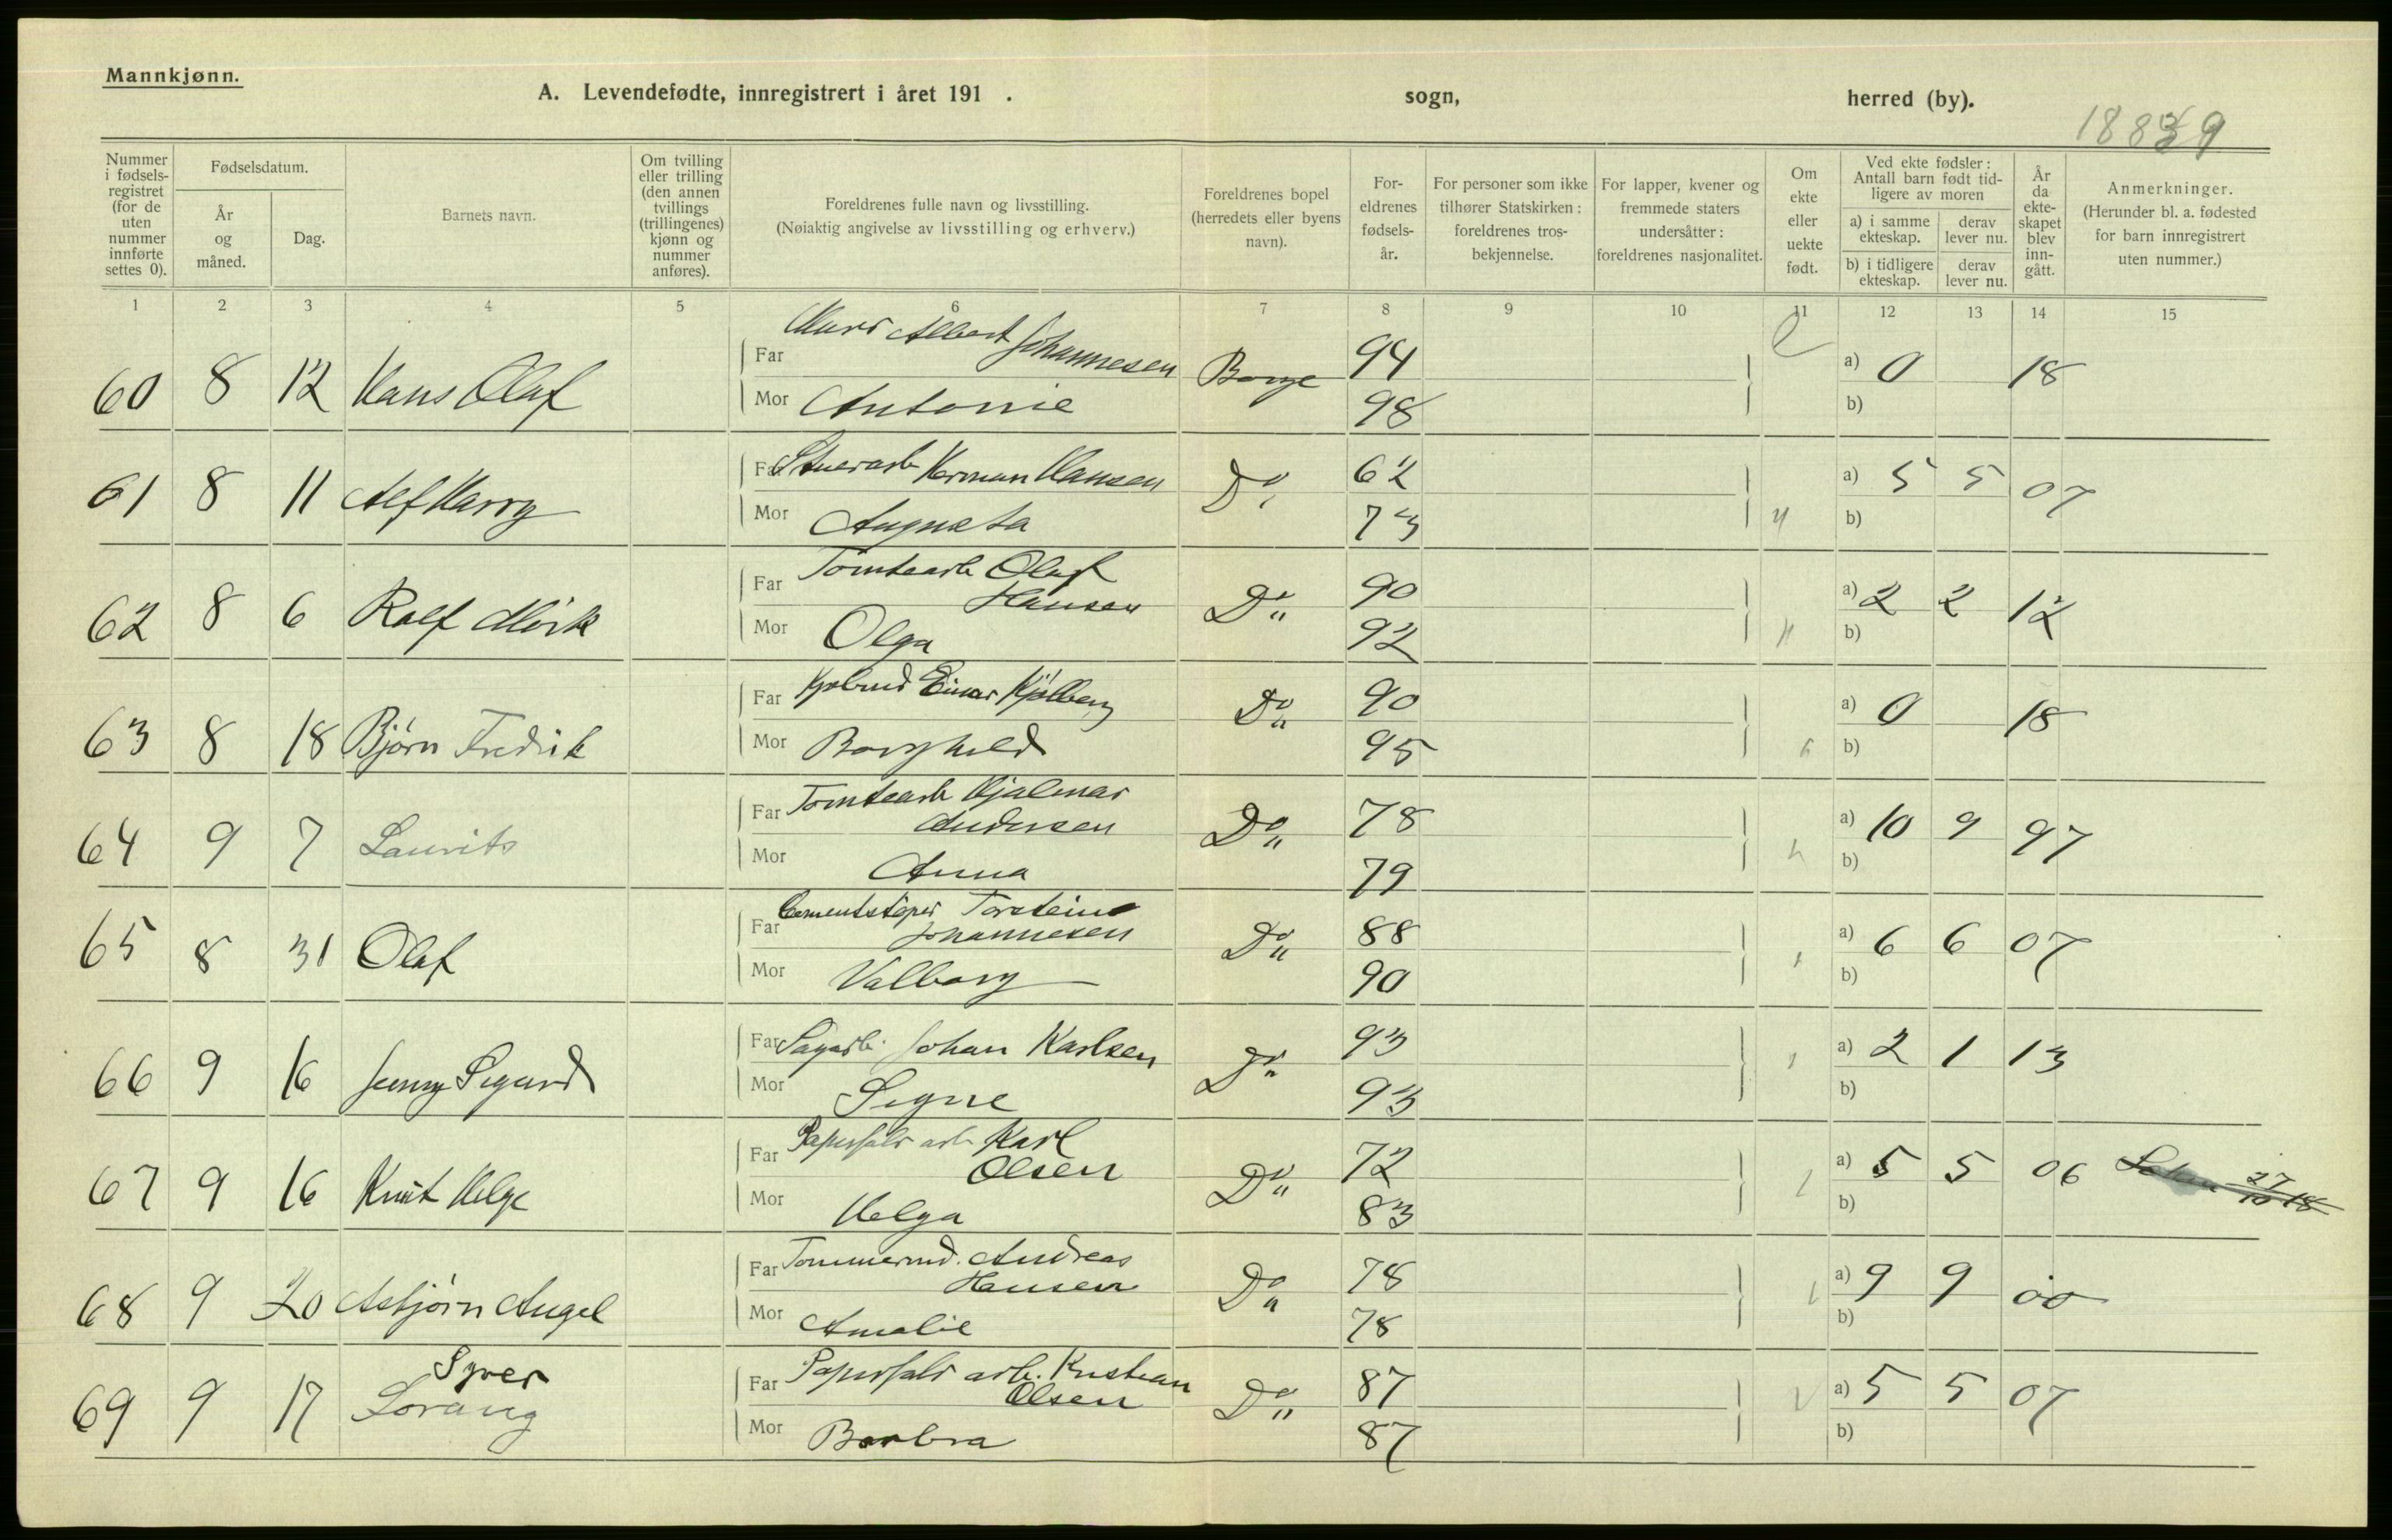 Mannkjønn.
A. Levendefødte, innregistrert i året 191 . sogn, herred (by).
Nummer i fødsels-registret (for de uten nummer innførte settes 0).
Fødselsdatum.
År og måned.
Dag.
Barnets navn.
Om tvilling eller trilling (den annen tvillings (trillingenes) kjønn og nummer anføres).
Foreldrenes fulle navn og livsstilling.
(Nøiaktig angivelse av livsstilling og erhverv.)
Foreldrenes bopel (herredets eller byens navn).
For-eldrenes fødsels-år.
For personer som ikke tilhører Statskirken: foreldrenes tros-bekjennelse.
For lapper, kvener og fremmede staters undersåtter: foreldrenes nasjonalitet.
Om ekte eller uekte født.
Ved ekte fødsler: Antall barn født tid-ligere av moren
a) i samme ekteskap. derav lever nu.
b) i tidligere ekteskap. derav lever nu.
År da ekte-skapet blev inn-gått.
Anmerkninger.
(Herunder bl. a. fødested for barn innregistrert uten nummer.)
1 2 3 4 5 6 7 8 9 10 11 12 13 14 15
60 8 12 Hans Olaf Far Albert Johannesen Borge 94 e a) 0 18
Mor Antonie 98 b)
61 8 11 Alf Harry Far Herman Hansen Do. 62 a) 5 5 07
Mor Augusta 73 " b)
62 8 6 Rolf Mørk Far Tomtearb Olaf Hansen Do " 90 a) 2 2 12
Mor Olga 92 " b)
63 8 18 Bjørn Fredrik Far Einar Kjölberg Do " 90 a) 0 18
Mor Borghild 95 b)
64 9 7 Laurits Far Tomtearb Hjalmar Andersen Do " 78 a) 10 9 97
Mor Anna 79 b)
65 8 31 Olaf Far Cementstöper Torstein Johannesen Do " 88 a) 6 6 07
Mor Valborg 90 b)
66 9 16 Jenny Sigurd Far Sagarb. Johan Karlsen Do " 93 a) 2 1 13
Mor Signe 93 b)
67 9 16 Knut Helge Far Papirfabr arb Karl Olsen Do " 72 a) 5 5 06 27/10 18
Mor Helga 83 b)
68 9 20 Asbjörn Angel Far Tömmermd. Andreas Hansen Do " 78 a) 9 9 00
Mor Amalie 78 b)
69 9 17 Syver Lorang Far Papirfabr arb. Kristian Olsen Do " 87 a) 5 5 07
Mor Barbra 87 b)